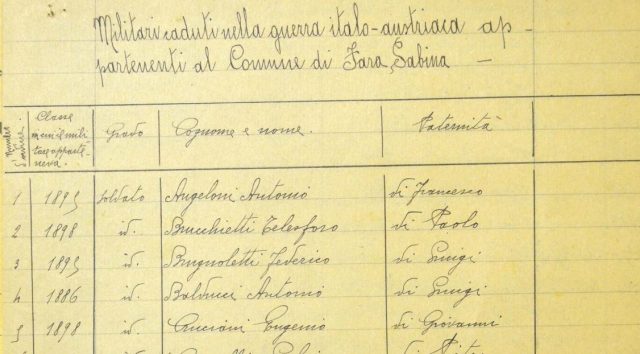 Militari caduti nella guerra italo-austriaca ap-
partenenti al Comune di Fara Sabina —
Numero d'ordine Classe a cui il mili tare apparte- neva. Grado Cognome e nome. Paternità
1 1895 soldato Angeloni Antonio di Francesco
2 1898 id. Brucchietti Telesforo di Paolo
3 1895 id. Brugnoletti Federico di Luigi
4 1886 id. Balducci Antonio di Luigi
5 1898 id. Eugenio di Giovanni